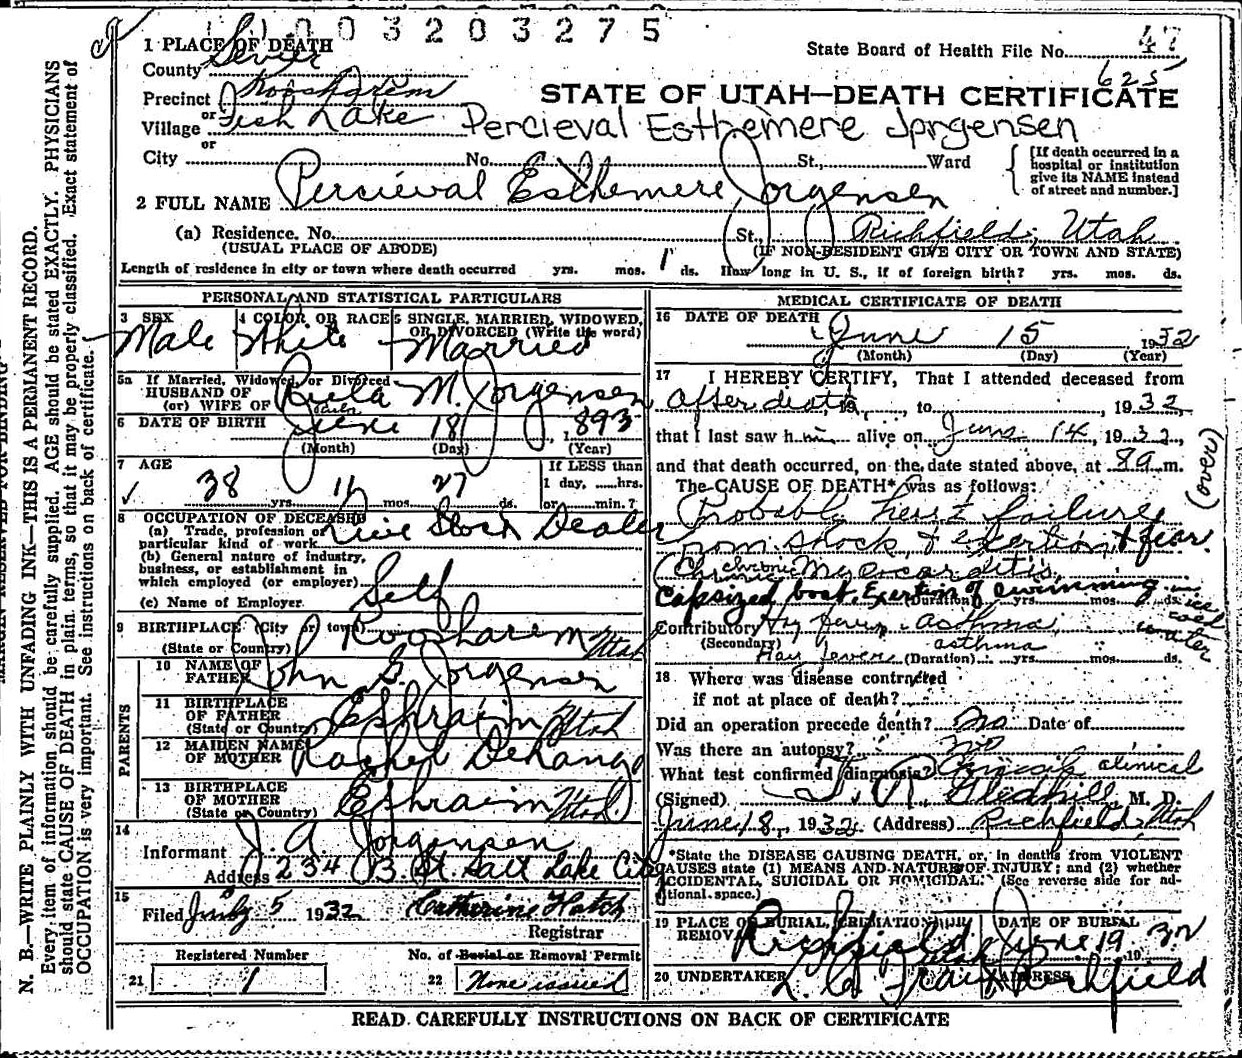 1003203275
1 PLACE OF DEATH
State Board of Health File No. 47
County Sevier
625
Precinct Koosharem
STATE OF UTAH—DEATH CERTIFICATE
or
Village Fish Lake
Percieval Esthemere Jorgensen
or
City No. St., Ward
[If death occurred in a hospital or institution give its NAME instead of street and number.]
2 FULL NAME Percieval Esthemere Jorgensen
(a) Residence. No. St., Richfield, Utah
(USUAL PLACE OF ABODE) (IF NON-RESIDENT GIVE CITY OR TOWN AND STATE)
Length of residence in city or town where death occurred yrs. mos. 1 ds. How long in U. S., if of foreign birth? yrs. mos. ds.
PERSONAL AND STATISTICAL PARTICULARS
3 SEX Male
4 COLOR OR RACE White
5 SINGLE, MARRIED, WIDOWED, OR DIVORCED (Write the word) Married
5a If Married, Widowed, or Divorced
HUSBAND OF
(or) WIFE OF Rula M. Jorgensen
6 DATE OF BIRTH June 18, 1893
(Month) (Day) (Year)
7 AGE 38 yrs. 11 mos. 27 ds.
If LESS than 1 day, ......hrs. or ......min.?
8 OCCUPATION OF DECEASED
(a) Trade, profession or particular kind of work Live Stock Dealer
(b) General nature of industry, business, or establishment in which employed (or employer) Self
(c) Name of Employer
9 BIRTHPLACE (City or town) Koosharem Utah
(State or Country)
PARENTS
10 NAME OF FATHER John S. Jorgensen
11 BIRTHPLACE OF FATHER Ephraim Utah
(State or Country)
12 MAIDEN NAME OF MOTHER Rachel
13 BIRTHPLACE OF MOTHER Ephraim Utah
(State or Country)
14
Informant J. A. Jorgensen
Address 234 B. St. Salt Lake City
15
Filed July 5 1932 Catherine Hatch
Registrar
Registered Number
21 1
No. of Burial or Removal Permit
22 None issued
MEDICAL CERTIFICATE OF DEATH
16 DATE OF DEATH June 15 1932
(Month) (Day) (Year)
17 I HEREBY CERTIFY, That I attended deceased from
after death, 19......, to ......, 1932,
that I last saw him alive on June 14, 1932,
and that death occurred, on the date stated above, at 8 a m.
(over)
The CAUSE OF DEATH* was as follows:
Probable heart failure
from shock, & exertion & fear.
chronic
Chronic Myocarditis
Capsized boat. Exertion of swimming in ice cold water
(Duration) yrs. mos. ds.
Contributory Hay fever asthma
(Secondary) Hay fever asthma
(Duration) yrs. mos. ds.
18 Where was disease contracted
if not at place of death?
Did an operation precede death? No Date of
Was there an autopsy? No
What test confirmed diagnosis? Clinical clinical
(Signed) T. R. Gledhill, M. D.
June 18, 1932 (Address) Richfield, Utah
*State the DISEASE CAUSING DEATH, or, in deaths from VIOLENT CAUSES state (1) MEANS AND NATURE OF INJURY; and (2) whether ACCIDENTAL, SUICIDAL OR HOMICIDAL. (See reverse side for additional space.)
19 PLACE OF BURIAL, CREMATION OR REMOVAL Richfield Utah
DATE OF BURIAL June 19 1932
20 UNDERTAKER
ADDRESS Richfield
READ CAREFULLY INSTRUCTIONS ON BACK OF CERTIFICATE
N. B.—WRITE PLAINLY WITH UNFADING INK—THIS IS A PERMANENT RECORD.
Every item of information should be carefully supplied. AGE should be stated EXACTLY. PHYSICIANS
should state CAUSE OF DEATH in plain terms, so that it may be properly classified. Exact statement of
OCCUPATION is very important. See instructions on back of certificate.
MARGIN RESERVED FOR BINDING